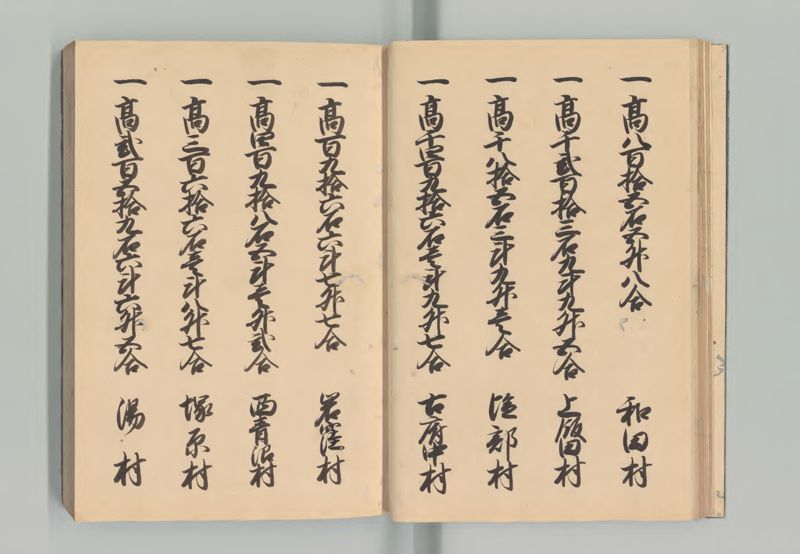 一高八百拾五石五升八合　和田村
一高千弐百拾三石九斗九升五合　上飯田村
一高千八拾五石三斗九升壱合　塩部村
一高千四百九拾六石壱斗九升七合　古府中村
一高百九拾六石六斗七升七合　岩窪村
一高四百九拾八石五斗壱升弐合　西青沼村
一高三百六拾六石壱斗八升七合　塚原村
一高弐百五拾九石六斗六升五合　湯村